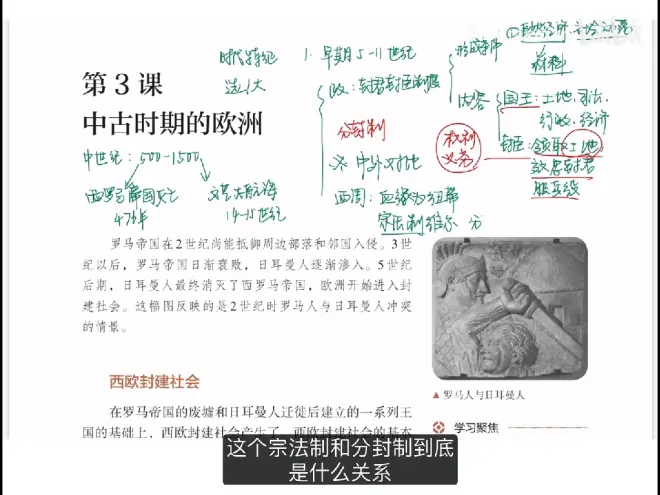 时代特纪
选1大
1. 早期 5-11世纪
政：封君封臣制度
形成条件
内容
材料
国王：土地、司法、
行政、经济
封臣：领取土地
效忠封君
服兵役
权利
义务
分封制
※ 中外对比
西周：血缘为纽带
宗法制维系 分
第3课
中古时期的欧洲
中世纪：500-1500
西罗马帝国灭亡
476年
文艺大航海
14-15世纪
罗马帝国在2世纪尚能抵御周边部落和邻国入侵。3世
纪以后，罗马帝国日渐衰败，日耳曼人逐渐渗入。5世纪
后期，日耳曼人最终消灭了西罗马帝国，欧洲开始进入封
建社会。这幅图反映的是2世纪时罗马人与日耳曼人冲突
的情景。
西欧封建社会
▲ 罗马人与日耳曼人
在罗马帝国的废墟和日耳曼人迁徙后建立的一系列王
国的基础上，西欧封建社会产生了。西欧封建社会的基本
学习聚焦
这个宗法制和分封制到底
是什么关系